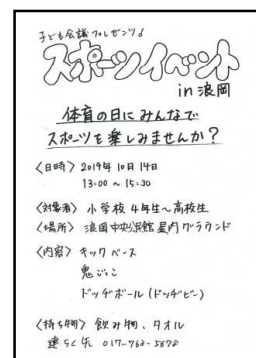 子ども会議プレゼンツ!
スポーツイベント
in 浪岡
体育の日にみんなで
スポーツを楽しみませんか?
〈日時〉 2019年 10月 14日
13:00 ~ 15:30
〈対象者〉 小学校 4年生~高校生
〈場所〉 浪岡中央公民館 屋内グラウンド
〈内容〉 キックベース
鬼ごっこ
ドッヂボール(ドッヂビー)
〈持ち物〉 飲み物、タオル
連らく先 017-763-5678